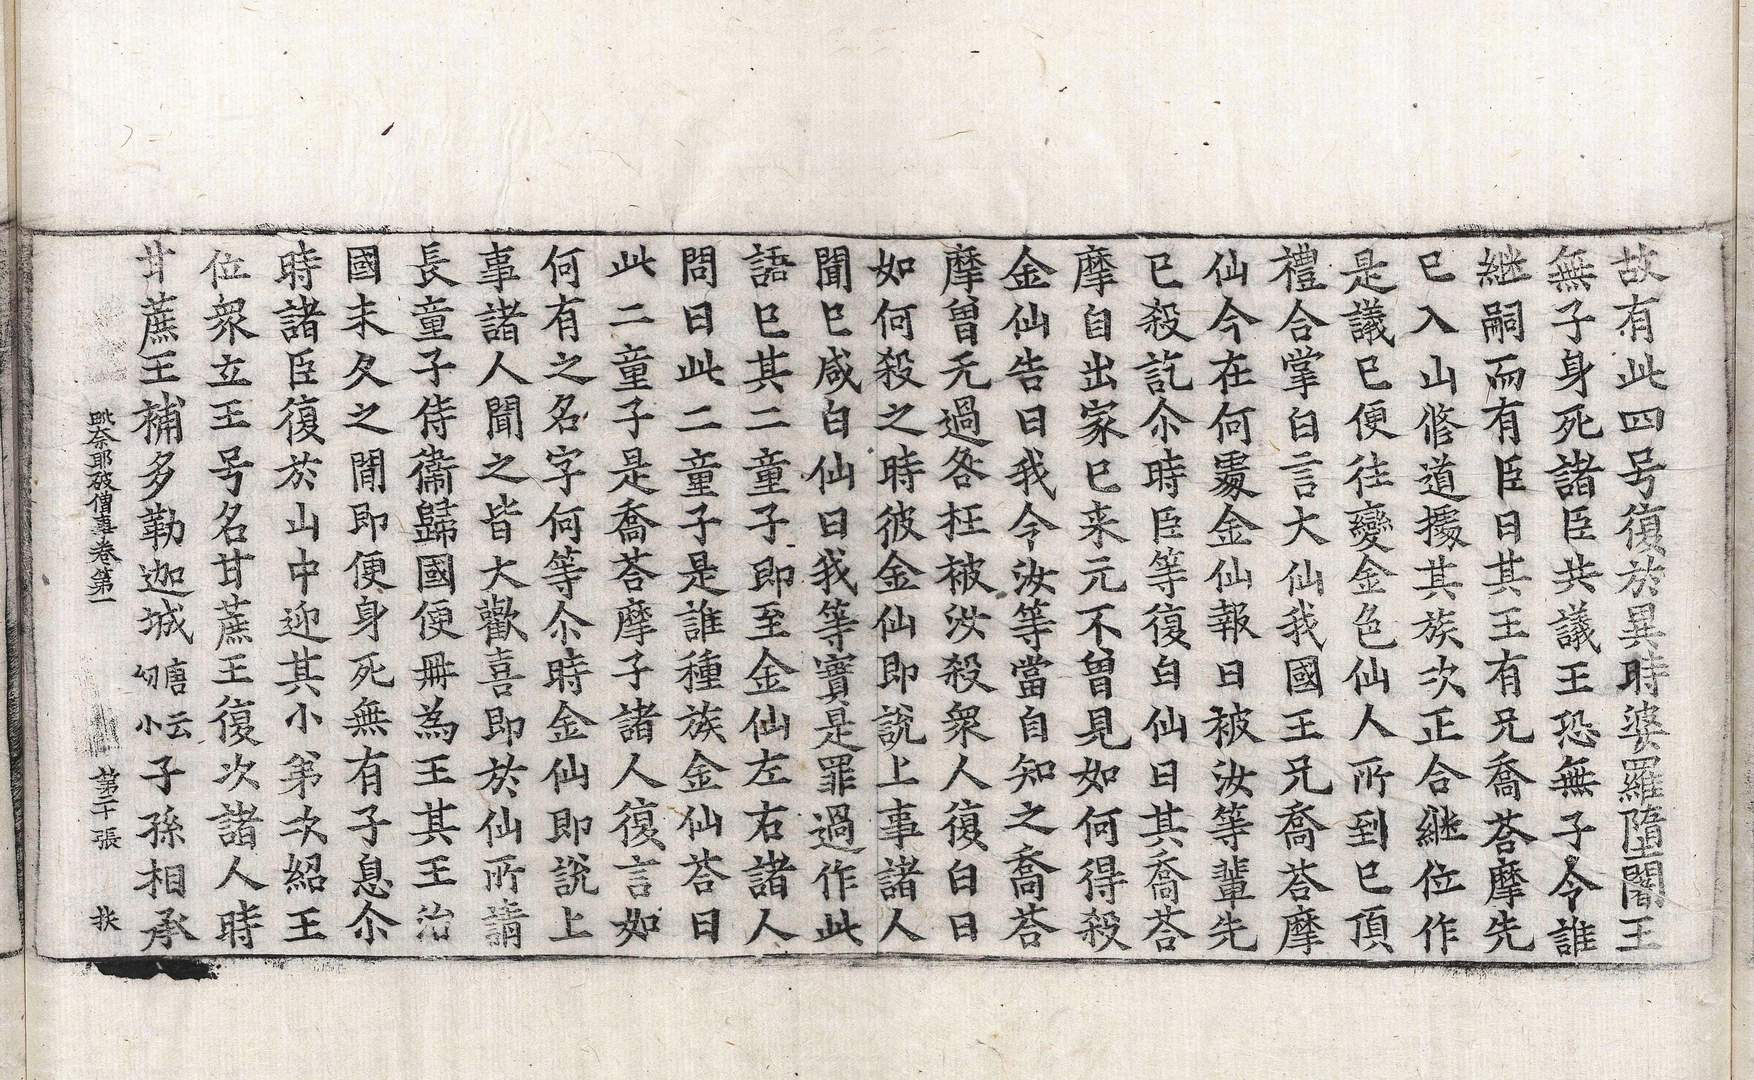 故有此四号復於異時婆羅墮闍王
無子身死諸臣共議王恐無子令誰
継嗣而有臣曰其王有兄喬荅摩先
已入山修道據其族次正合継位作
是議已便往變金色仙人所到已頂
禮合掌白言大仙我國王兄喬荅摩
仙今在何處金仙報曰被汝等輩先
已殺訖尒時臣等復白仙曰其喬荅
摩自出家已来元不曽見如何得殺
金仙告曰我今汝等當自知之喬荅
摩曽无過咎枉被汝殺衆人復白曰
如何殺之時彼金仙即說上事諸人
聞已咸白仙曰我等實是罪過作此
語已其二童子即至金仙左右諸人
問曰此二童子是誰種族金仙荅曰
此二童子是喬荅摩子諸人復言如
何有之名字何等尒時金仙即說上
事諸人聞之皆大歡喜即於仙所請
長童子侍衞歸國便冊為王其王治
國未久之間即便身死無有子息尒
時諸臣復於山中迎其小弟次紹王
位衆立王号名甘蔗王復次諸人時
甘蔗王補多勒迦城唐云小子孫相承
毗奈耶破僧事卷第一 第二十張 扶